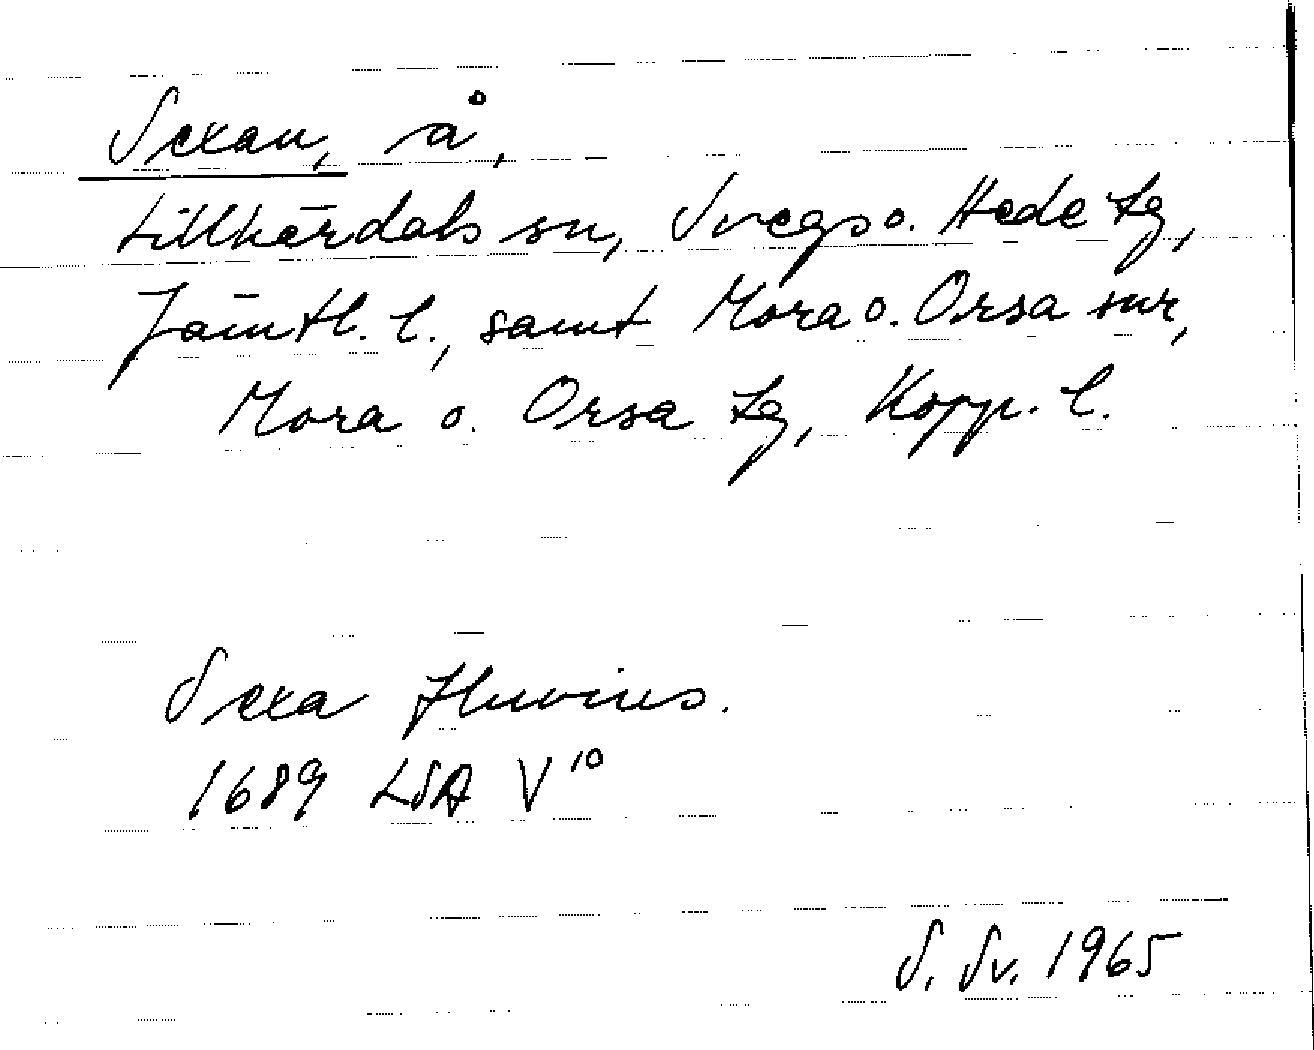 Sexan, å,
Lillhärdals sn, Svegs o. Hede tg,
Jämtl. l., samt Mora o. Orsa snr,
Mora o. Orsa tg, Kopp. l.
Sexa Fluvius.
1689 LSA V¹⁰
S. Sv. 1965